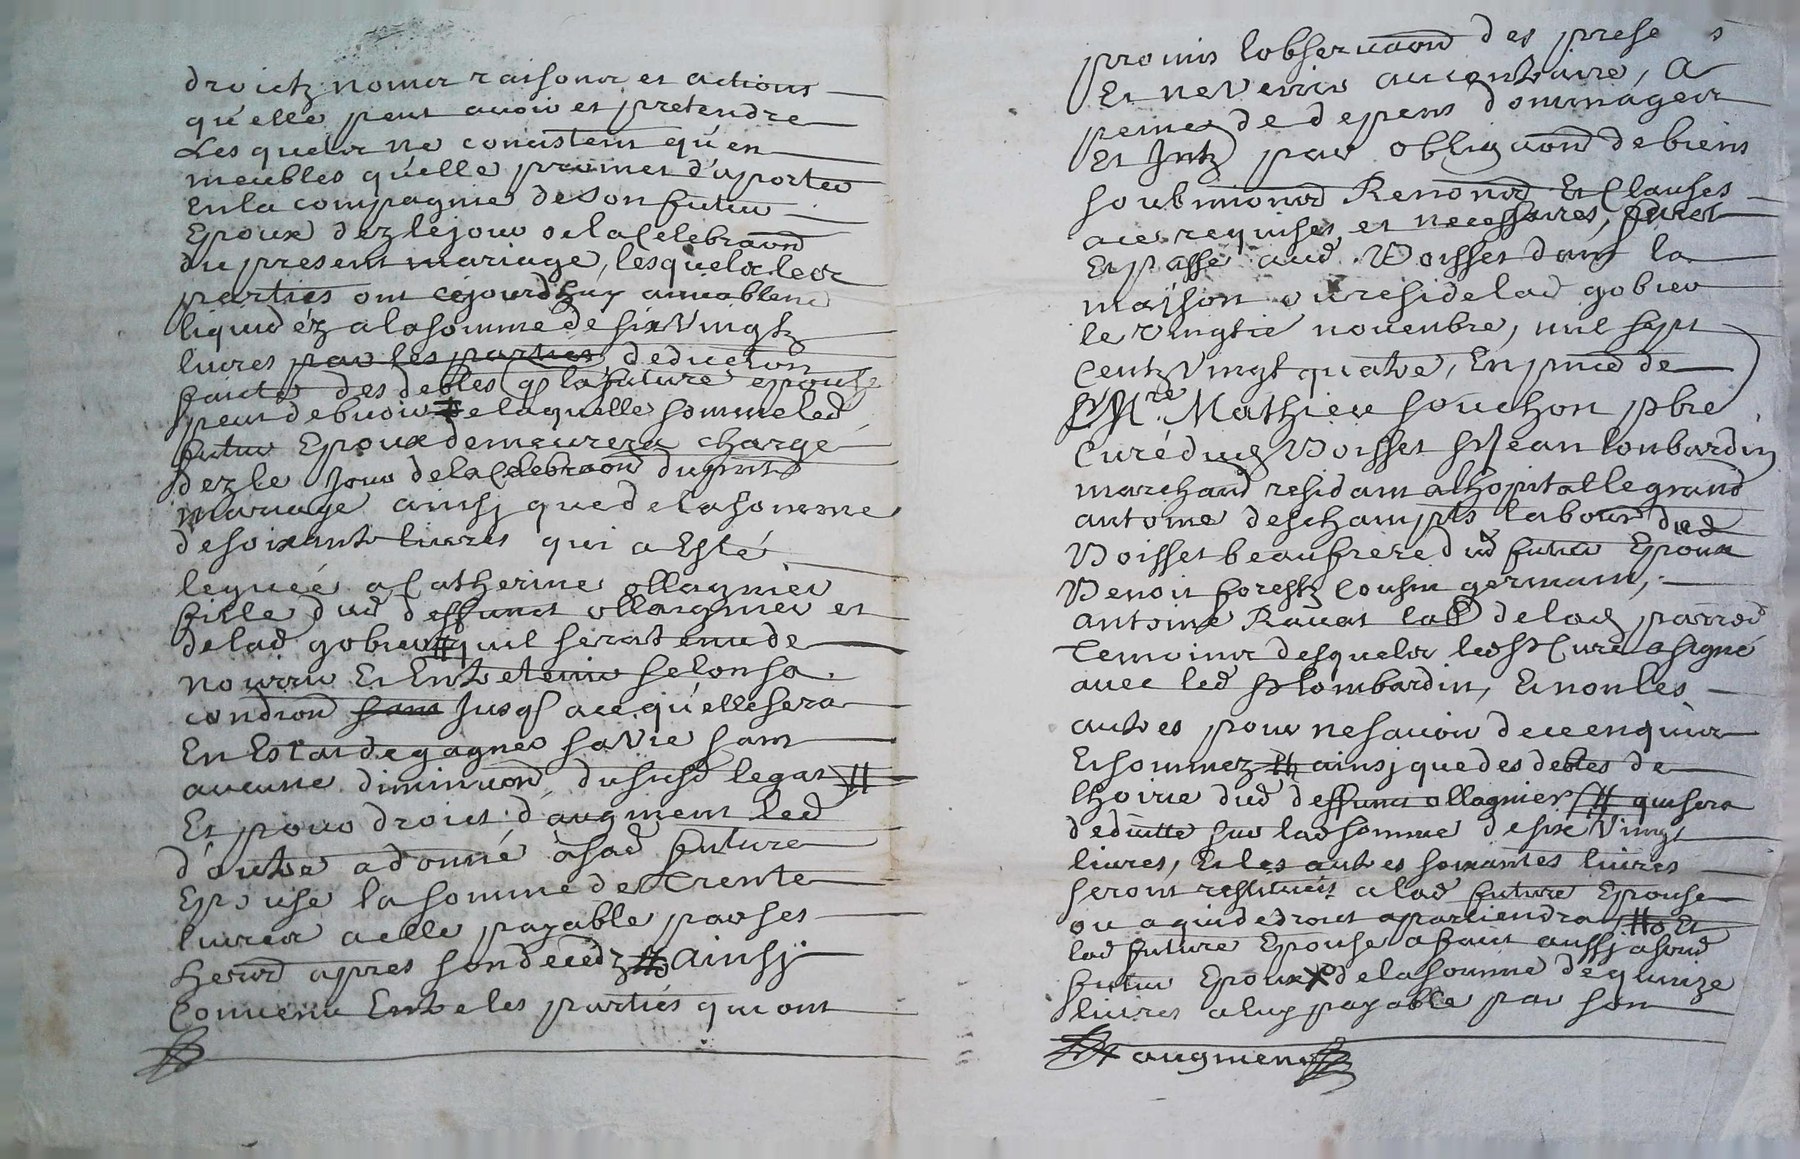 droictz nomer raisoner et actions
qu'elle peut avoir et pretendre
Lesqueler ne concistent qu'en
meubles qu'elle promet d'aporter
En la compagnie de Son futur
Epoux dez le jour de la Celebraõn
du present mariage, lesqueler les
parties ont cejourd'huy amiablemẽ
liquidéz a la somme de six Vingtz
livres par les parties deduction
faicte des debtes q̃ la future epouse
peut debvoir # de laquelle somme led
futur Epoux demeurera chargé
dez le Jour de la Celebraõn du pñt
mariage ainsj que de la somme
de soixante livres qui a Esté
leguéé a Catherine ollagnier
fille dud deffunct ollaignier et
de lad gobier # quil sera tenu de
nourrir Et Entretenir selon sa
condiõn sans Jusq̃ a ce qu'elle sera
En Estat de gagner sa Vie sans
aucune diminuõn du susd legat #
Et pour droict d'augment led
d'autre a donné à sad future
Epouse la somme de Trente
livres a elle payable par ses
heurs apres son decedz # Ainsj
Convenu Entre les partiés qui ont
promis lobservaõn des prese s
Et ne Venir au contraire, A
peine de depens dommages
Et Jntz par obligaõn de biens
soubmions Renons Et Clauses
a ce requises et necessaires, faict
Et passé aud Voisset dans la
maison ou reside lad gobier
le Vingtie novenbre, mil sept
Centz Vingt quatre, En pñce de
Mre Mathieu souchon pbre
Curé dud Voisset Sr Jean lonbardin
marchand residant a lhopital le grand
antoine deschampts labour dud
Voisset beaufrere dud futur Epoux
Benoit forestz Cousin germain,
antoine Ravat lab de lad parred
Temoins desqueler led Sr Curé a signé
avec led Sr lombardin, Et non les
autres pour ne savoir de ce enquis
Et sommez # ainsj que des debtes de
lhoirie dud deffunct ollagnier # qui sera
deduitte sur lad somme de six Vingt
livres, Et les autres soixantes livres
seront restituéés a lad future Epouse
ou a qui de droict apartiendra # Et
lad future Epouse a faict aussj a sond
futur Epoux X de la somme de quinze
livres a luy payable par son
X augment